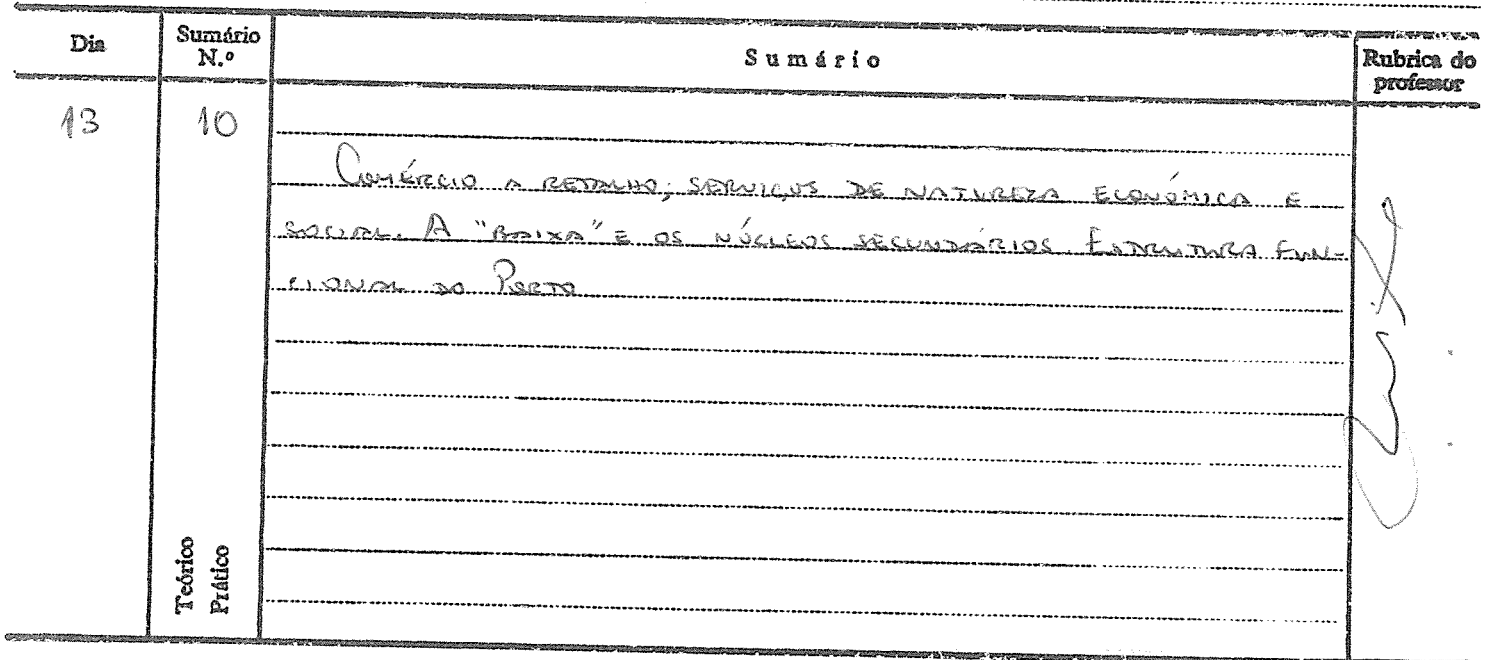 Dia Sumário N.º Sumário Rubrica do professor
13 10
COMÉRCIO A RETALHO; SERVIÇOS DE NATUREZA ECONÓMICA E
SOCIAL. A "BAIXA" E OS NÚCLEOS SECUNDÁRIOS. ESTRUTURA FUN-
CIONAL DO PORTO
Teórico
Prático